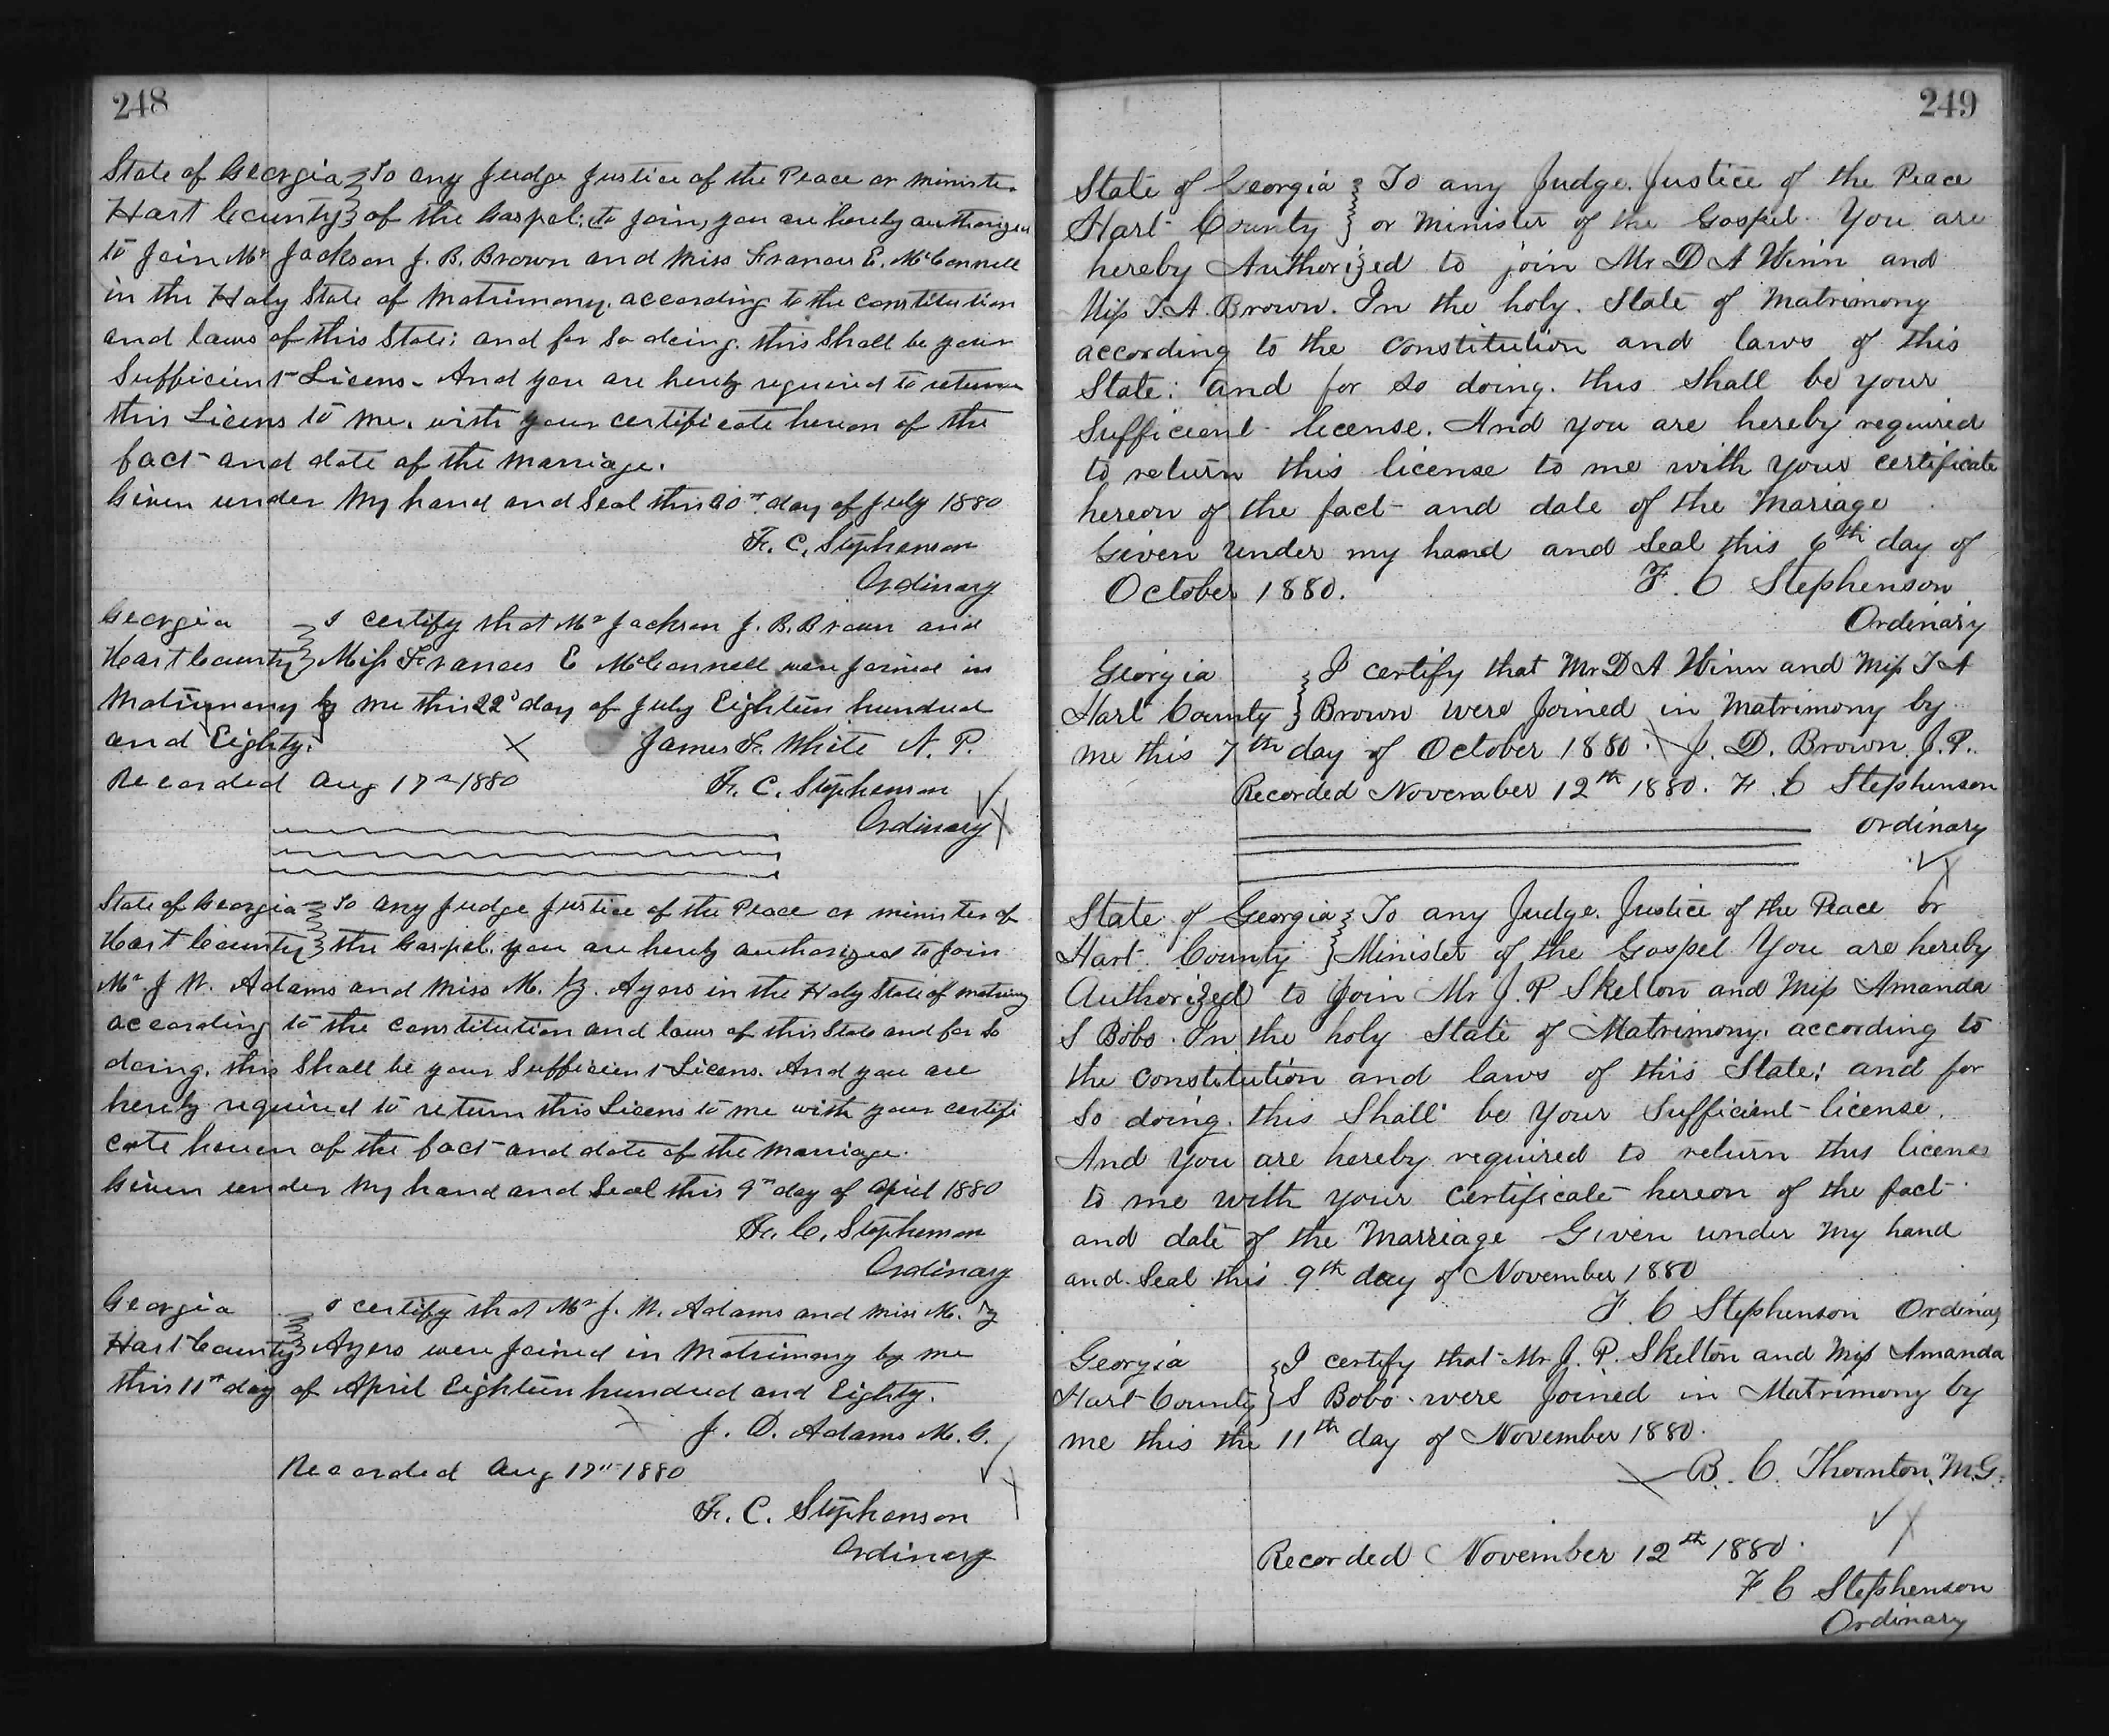 248
State of Georgia } To any Judge Justice of the Peace or Ministe.
Hart County } of the Gospel: to join, you are hereby authorized
to join Mr Jackson J. B. Brown and Miss Frances E. McConnell
in the Holy State of Matrimony, according to the constitution
and laws of this State; and for so doing. this shall be your
Sufficient Licens. And you are hereby required to return
this Licens to me. with your certificate hereon of the
fact and date of the marriage.
Given under My hand and Seal this 20th day of July 1880
F. C. Stephenson
Ordinary
Georgia } I certify that Mr Jackson J. B. Brown and
Hart County } Miss Frances E McConnell were joined in
Matrimony by me this 22d day of July Eighteen hundred
and Eighty.
James F. White N. P.
Recorded Aug 17th 1880
F. C. Stephenson
Ordinary
State of Georgia } To any Judge Justice of the Peace or minister of
Hart County } the Gospel. you are hereby authorized to join
Mr J W. Adams and Miss M. Ayers in the Holy State of matrimony
according to the constitution and laws of this State and for so
doing, this Shall be your Sufficient Licens. And you are
hereby required to return this Licens to me with your certifi
cate hereon of the fact and date of the marriage.
Given under My hand and Seal this 9th day of April 1880
F. C. Stephenson
Ordinary
Georgia } I certify that Mr J. W. Adams and Miss M.
Hart County } Ayers were joined in Matrimony by me
this 11th day of April Eighteen hundred and Eighty.
J. D. Adams M. G.
Recorded Aug 17th 1880
F. C. Stephenson
Ordinary
249
State of Georgia } To any Judge. Justice of the Peace
Hart County } or Minister of the Gospel. You are
hereby Authorized to join Mr D A Winn and
Miss T. A. Brown. In the holy. State of Matrimony
according to the constitution and laws of this
State: and for so doing. this shall be your
Sufficient license. And you are hereby required
to return this license to me with your certificate
hereon of the fact and date of the Mariage
Given under my hand and Seal this 6th day of
October 1880. F. C Stephenson
Ordinary
Georgia } I certify that Mr D A Winn and Miss T A
Hart County } Brown were Joined in Matrimony by
me this 7th day of October 1880. J. D. Brown J. P.
Recorded November 12th 1880. F. C Stephenson
Ordinary
State of Georgia } To any Judge. Justice of the Peace or
Hart County } Minister of the Gospel You are hereby
Authorized to Join Mr J. P Skelton and Miss Amanda
S Bobo. In the holy State of Matrimony. according to
the constitution and laws of this State; and for
so doing. this Shall be Your Sufficient license.
And You are hereby required to return this license
to me with your certificate hereon of the fact
and date of the Marriage Given under my hand
and Seal this 9th day of November 1880
F. C Stephenson Ordinary
Georgia } I certify that Mr J. P. Skelton and Miss Amanda
Hart County } S Bobo. were Joined in Matrimony by
me this the 11th day of November 1880.
B. C. Thornton, M.G.
Recorded November 12th 1880.
F C Stephenson
Ordinary